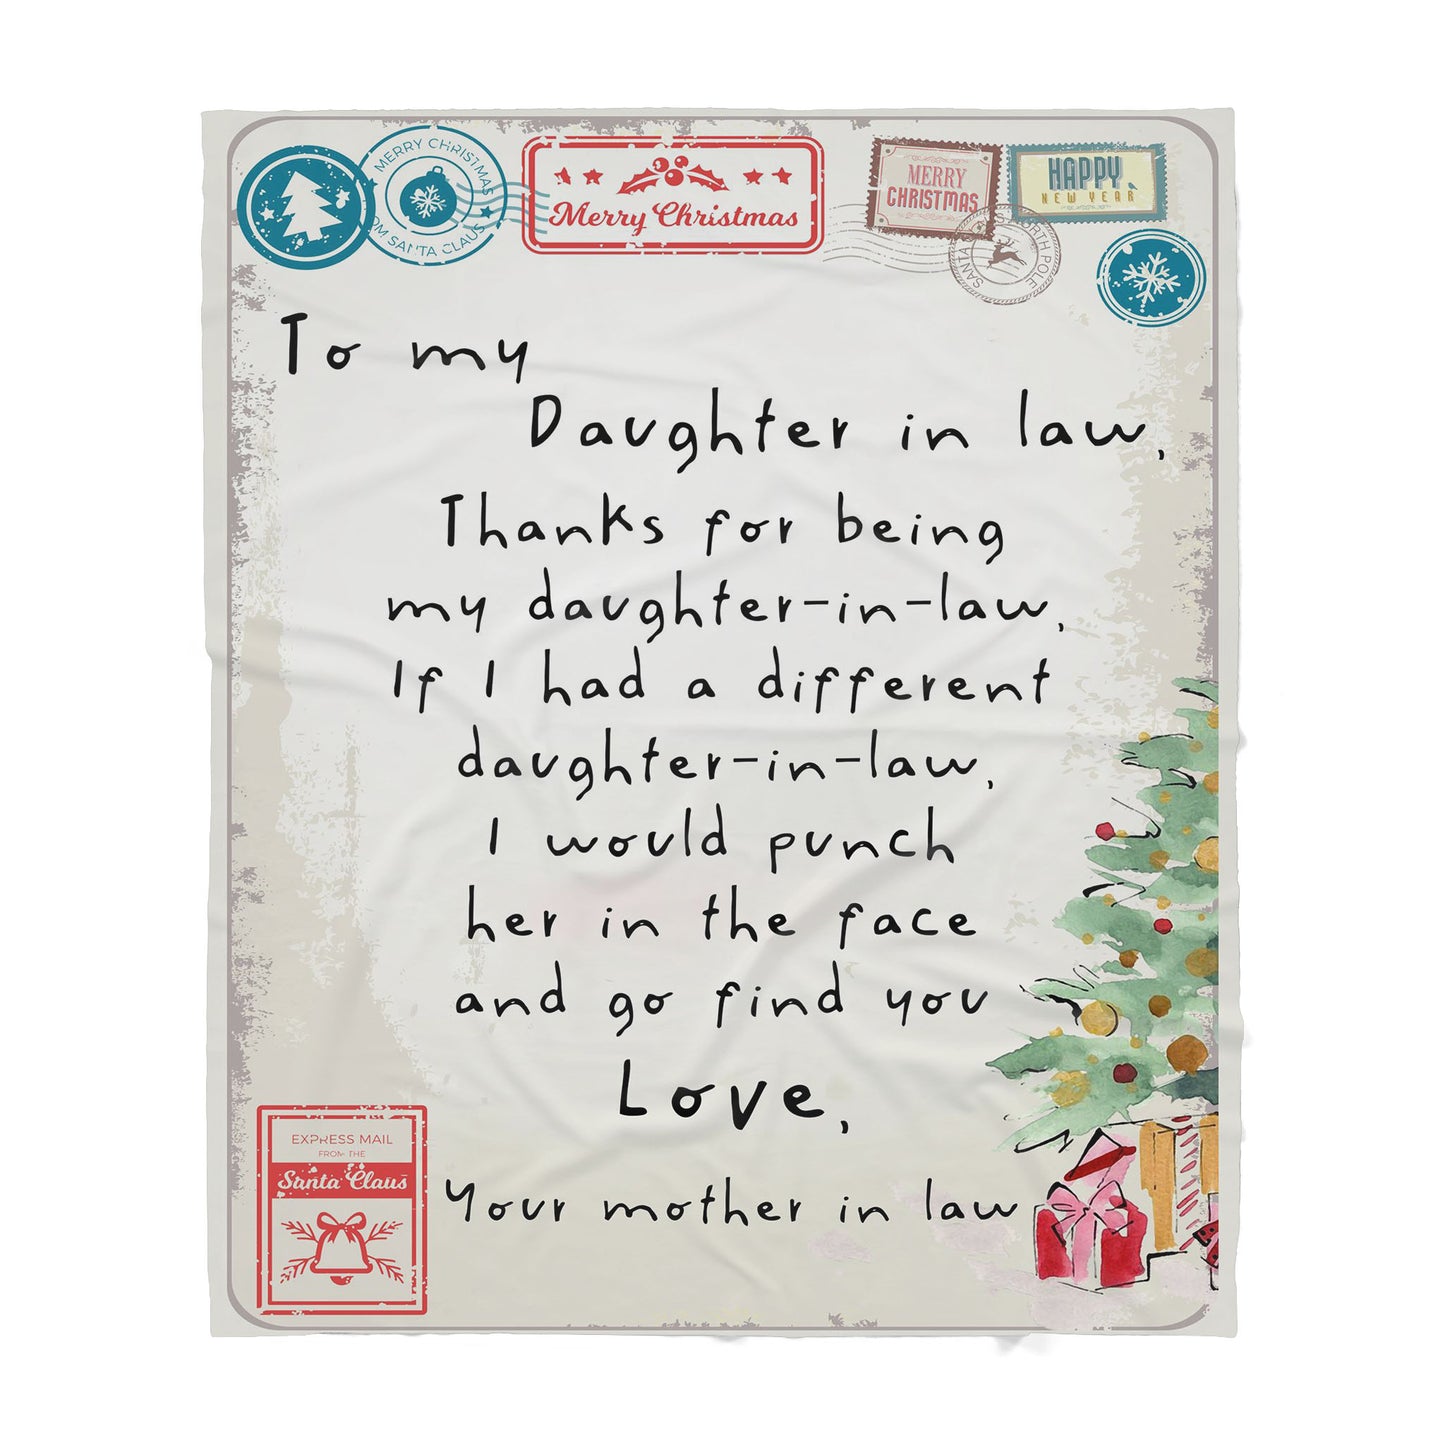 MERRY CHRISTMAS
OM SANTA CLAUS
Merry Christmas
MERRY
CHRISTMAS
HAPPY
NEW YEAR
SANTA
NORTH POLE
To my
Daughter in law,
Thanks for being
my daughter-in-law,
If I had a different
daughter-in-law,
I would punch
her in the face
and go find you
Love,
Your mother in law
EXPRESS MAIL
FROM THE
Santa Claus